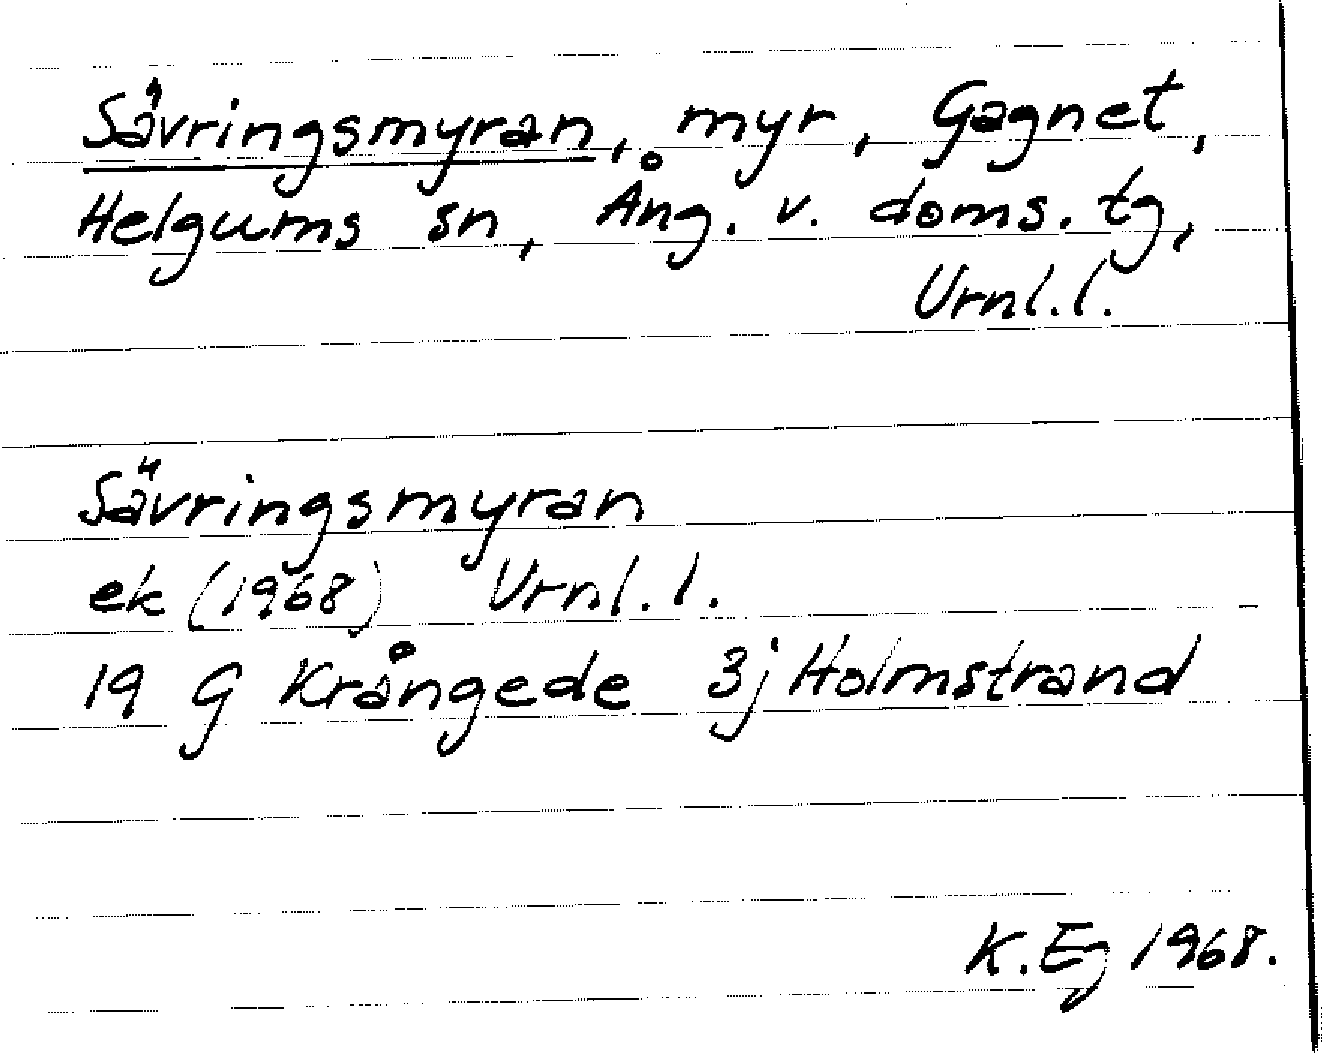 Sävringsmyran, myr, Gagnet,
Helgums sn, Ång. v. doms. tg,
Vrnl.l.
Sävringsmyran
ek (1968) Vrnl.l.
19 G Krångede 3j Holmstrand
K.Eg 1968.